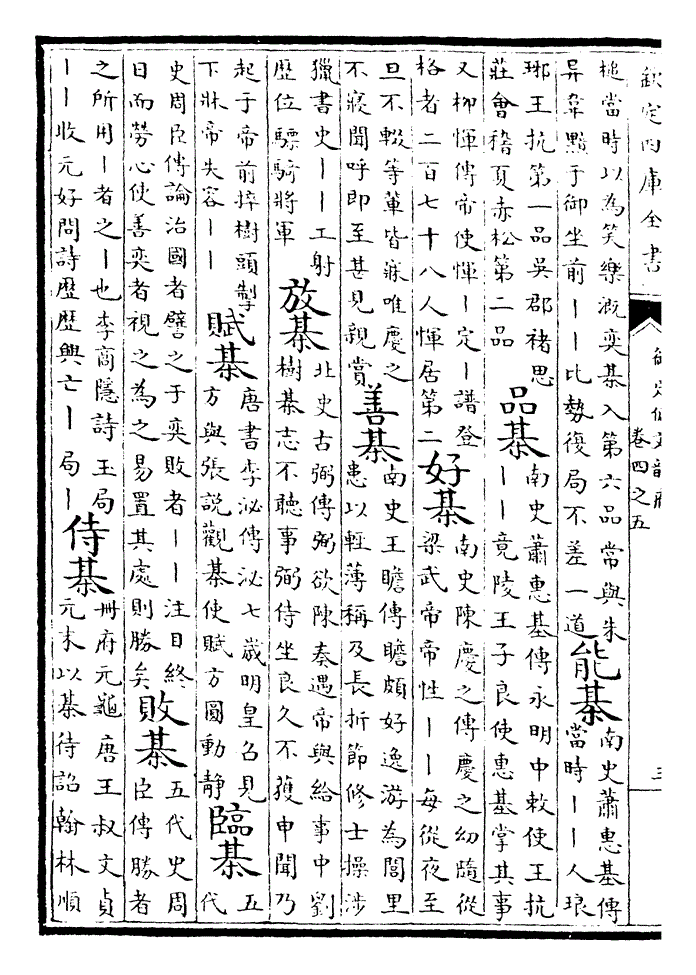 欽定四庫全書
御定佩文韻府
卷四之五
三
槌當時以為笑樂溉奕棊入第六品常與朱
异韋黯于御坐前丨丨比勢復局不差一道
能棊
南史蕭惠基傳
當時丨丨人琅
琊王抗第一品吳郡褚思
莊會稽夏赤松第二品
品棊
南史蕭惠基傳永明中敕使王抗
丨丨竟陵王子良使惠基掌其事
又柳惲傳帝使惲丨定丨譜登
格者二百七十八人惲居第二
好棊
南史陳慶之傳慶之幼隨從
梁武帝帝性丨丨每從夜至
旦不輟等輩皆寐唯慶之
不寢聞呼即至甚見親賞
善棊
南史王瞻傳瞻頗好逸游為閭里
患以輕薄稱及長折節修士操涉
獵書史丨丨工射
歷位驃騎將軍
放棊
北史古弼傳弼欲陳奏遇帝與給事中劉
樹棊志不聽事弼侍坐良久不獲申聞乃
起于帝前捽樹頭掣
下牀帝失容丨丨
賦棊
唐書李泌傳泌七歲明皇召見
方與張說觀棊使賦方圓動靜
臨棊
五
代
史周臣傳論治國者譬之于奕敗者丨丨注目終
日而勞心使善奕者視之為之易置其處則勝矣
敗棊
五代史周
臣傳勝者
之所用丨者之丨也李商隱詩玉局
丨丨收元好問詩歷歷興亡丨局丨
侍棊
冊府元龜唐王叔文貞
元末以棊待詔翰林順